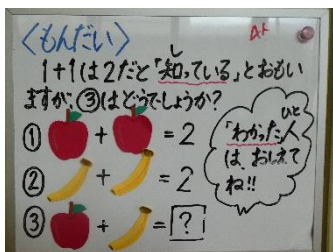 〈もんだい〉
1+1は2だと「知っている」とおもい
し
ますが、③はどうでしょうか?
① + = 2
② + = 2
③ + = ?
「わかった」人
ひと
は、おしえて
ね!!